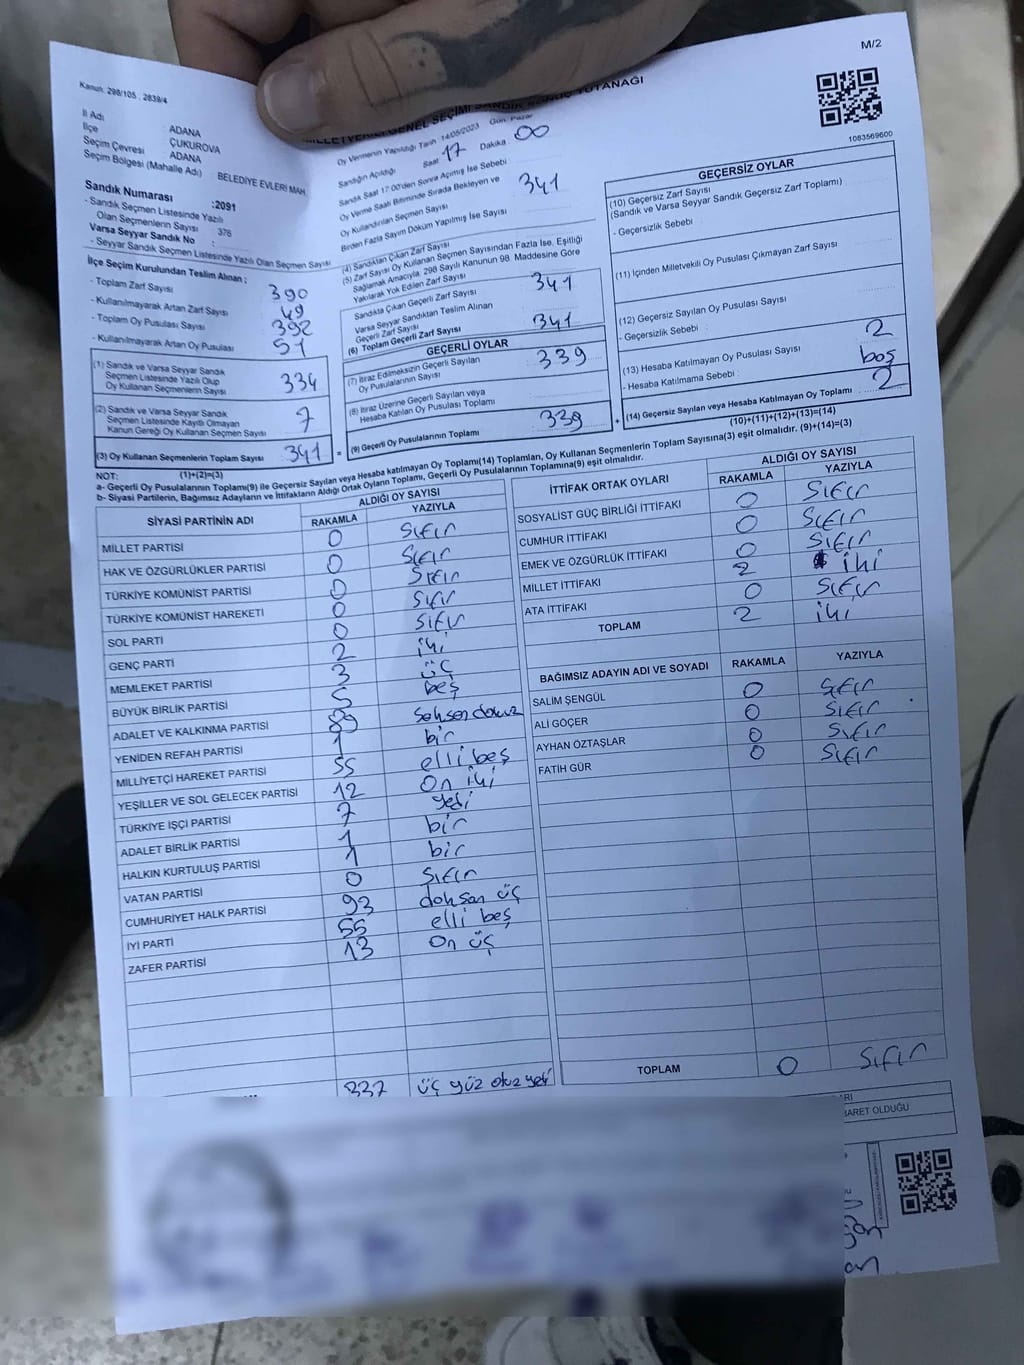 M/2
Kanun: 298/105 : 2839/4
1083569600
Oy Vermenin Yapıldığı Tarih :14/05/2023 Gün: Pazar
İl Adı : ADANA
İlçe : ÇUKUROVA
Seçim Çevresi : ADANA
Seçim Bölgesi (Mahalle Adı) : BELEDİYE EVLERİ MAH.
Sandık Numarası :2091
- Sandık Seçmen Listesinde Yazılı
Olan Seçmenlerin Sayısı : 376
Varsa Seyyar Sandık No :
- Seyyar Sandık Seçmen Listesinde Yazılı Olan Seçmen Sayısı
İlçe Seçim Kurulundan Teslim Alınan :
- Toplam Zarf Sayısı 390
- Kullanılmayarak Artan Zarf Sayısı 49
- Toplam Oy Pusulası Sayısı 392
- Kullanılmayarak Artan Oy Pusulası 51
(1) Sandık ve Varsa Seyyar Sandık
Seçmen Listesinde Yazılı Olup
Oy Kullanan Seçmenlerin Sayısı 334
(2) Sandık ve Varsa Seyyar Sandık
Seçmen Listesinde Kayıtlı Olmayan
Kanun Gereği Oy Kullanan Seçmen Sayısı 7
(3) Oy Kullanan Seçmenlerin Toplam Sayısı 341
(1)+(2)=(3)
Sandığın Açıldığı Saat 17 Dakika 00
Sandık Saat 17:00'den Sonra Açılmış İse Sebebi
Oy Verme Saati Bitiminde Sırada Bekleyen ve
Oy Kullandırılan Seçmen Sayısı 341
Birden Fazla Sayım Döküm Yapılmış İse Sayısı
(4) Sandıktan Çıkan Zarf Sayısı
(5) Zarf Sayısı Oy Kullanan Seçmen Sayısından Fazla İse, Eşitliği
Sağlamak Amacıyla, 298 Sayılı Kanunun 98. Maddesine Göre
Yakılarak Yok Edilen Zarf Sayısı
Sandıkta Çıkan Geçerli Zarf Sayısı 341
Varsa Seyyar Sandıktan Teslim Alınan
Geçerli Zarf Sayısı
(6) Toplam Geçerli Zarf Sayısı 341
GEÇERLİ OYLAR
(7) İtiraz Edilmeksizin Geçerli Sayılan
Oy Pusulalarının Sayısı 339
(8) İtiraz Üzerine Geçerli Sayılan veya
Hesaba Katılan Oy Pusulası Toplamı
(9) Geçerli Oy Pusulalarının Toplamı 339
GEÇERSİZ OYLAR
(10) Geçersiz Zarf Sayısı
(Sandık ve Varsa Seyyar Sandık Geçersiz Zarf Toplamı)
- Geçersizlik Sebebi :
(11) İçinden Milletvekili Oy Pusulası Çıkmayan Zarf Sayısı
(12) Geçersiz Sayılan Oy Pusulası Sayısı
- Geçersizlik Sebebi : 2
(13) Hesaba Katılmayan Oy Pusulası Sayısı boş
- Hesaba Katılmama Sebebi :
(14) Geçersiz Sayılan veya Hesaba Katılmayan Oy Toplamı 2
(10)+(11)+(12)+(13)=(14)
NOT:
a- Geçerli Oy Pusulalarının Toplamı(9) ile Geçersiz Sayılan veya Hesaba katılmayan Oy Toplamı(14) Toplamları, Oy Kullanan Seçmenlerin Toplam Sayısına(3) eşit olmalıdır. (9)+(14)=(3)
b- Siyasi Partilerin, Bağımsız Adayların ve İttifakların Aldığı Ortak Oyların Toplamı, Geçerli Oy Pusulalarının Toplamına(9) eşit olmalıdır.
SİYASİ PARTİNİN ADI ALDIĞI OY SAYISI
RAKAMLA YAZIYLA
MİLLET PARTİSİ 0 sıfır
HAK VE ÖZGÜRLÜKLER PARTİSİ 0 sıfır
TÜRKİYE KOMÜNİST PARTİSİ 0 sıfır
TÜRKİYE KOMÜNİST HAREKETİ 0 sıfır
SOL PARTİ 0 sıfır
GENÇ PARTİ 2 iki
MEMLEKET PARTİSİ 3 üç
BÜYÜK BİRLİK PARTİSİ 5 beş
ADALET VE KALKINMA PARTİSİ 89 seksen dokuz
YENİDEN REFAH PARTİSİ 1 bir
MİLLİYETÇİ HAREKET PARTİSİ 55 elli beş
YEŞİLLER VE SOL GELECEK PARTİSİ 12 on iki
TÜRKİYE İŞÇİ PARTİSİ 7 yedi
ADALET BİRLİK PARTİSİ 1 bir
HALKIN KURTULUŞ PARTİSİ 1 bir
VATAN PARTİSİ 0 sıfır
CUMHURİYET HALK PARTİSİ 93 doksan üç
İYİ PARTİ 55 elli beş
ZAFER PARTİSİ 13 on üç
337 üç yüz otuz yedi
İTTİFAK ORTAK OYLARI ALDIĞI OY SAYISI
RAKAMLA YAZIYLA
SOSYALİST GÜÇ BİRLİĞİ İTTİFAKI 0 sıfır
CUMHUR İTTİFAKI 0 sıfır
EMEK VE ÖZGÜRLÜK İTTİFAKI 0 sıfır
MİLLET İTTİFAKI 2 iki
ATA İTTİFAKI 0 sıfır
TOPLAM 2 iki
BAĞIMSIZ ADAYIN ADI VE SOYADI RAKAMLA YAZIYLA
SALİM ŞENGÜL 0 sıfır
ALİ GÖÇER 0 sıfır
AYHAN ÖZTAŞLAR 0 sıfır
FATİH GÜR 0 sıfır
TOPLAM 0 sıfır
OLDUĞU